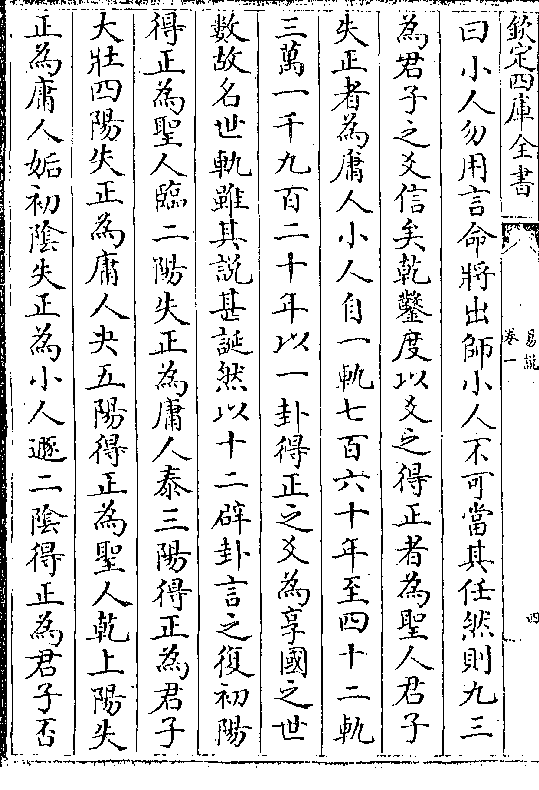 欽定四庫全書
易說
卷一
四
曰小人勿用言命將出師小人不可當其任然則九三
為君子之爻信矣乾鑿度以爻之得正者為聖人君子
失正者為庸人小人自一軌七百六十年至四十二軌
三萬一千九百二十年以一卦得正之爻為享國之世
數故名世軌雖其說甚誕然以十二辟卦言之復初陽
得正為聖人臨二陽失正為庸人泰三陽得正為君子
大壯四陽失正為庸人夬五陽得正為聖人乾上陽失
正為庸人姤初陰失正為小人遯二陰得正為君子否